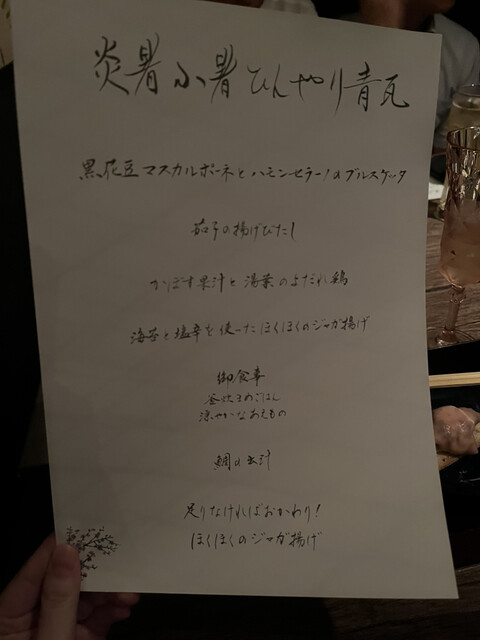 炎暑小暑ひんやり青瓦
黒花豆マスカルポーネとハモンセラーノのブルスケッタ
茄子の揚げびたし
かぼす果汁と湯葉のよだれ鶏
海苔と塩辛を使ったほくほくのジャガ揚げ
御食事
釜炊きめごはん
涼やかなあえもの
鯛の出汁
足りなければおかわり！
ほくほくのジャガ揚げ